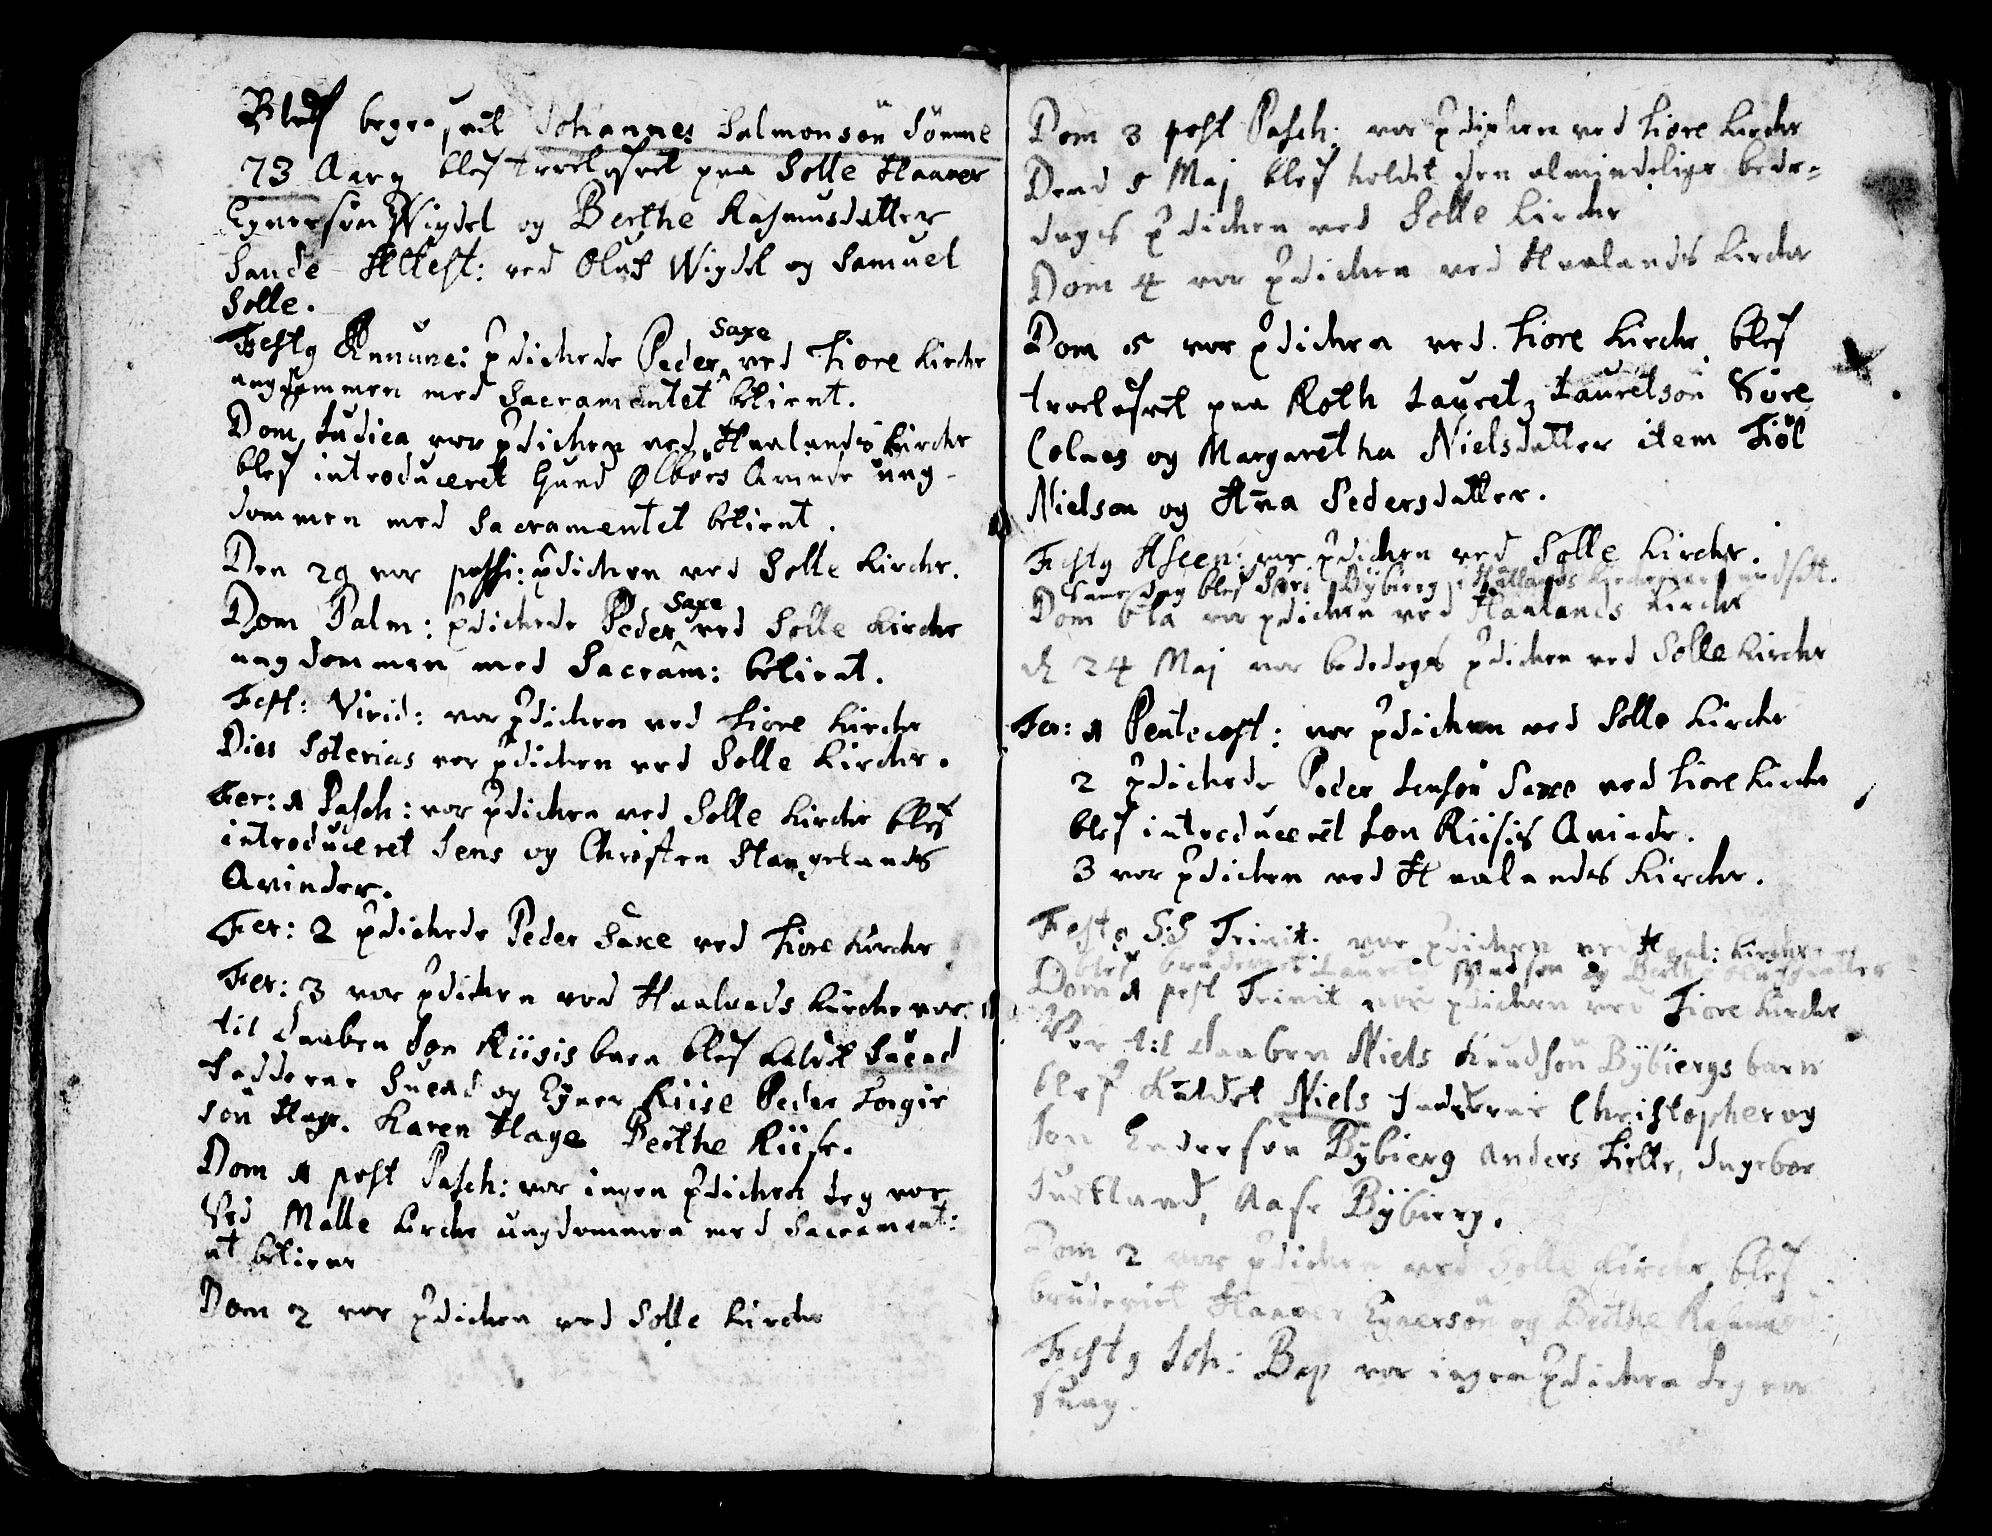 Blef begrafvet Johannes Salmonsön Sömme
73 Aarg blef trolofvet paa Solle Haaver
Eynersön Wigdel og Berthe Rasmusdatter
Sande Attest: ved Oluf Wigdel og Samuel
Solle.
Festo Annunc: pdichede Peder Saxe ved Tiore Kirche
ungdommen med Sacramentet betient.
Dom Judica var pdichen ved Haalands Kirche
blef introduceret Gund Ølbørs Qvinde ung-
dommen med Sacramentet betient.
Den 29 var passi: pdichen ved Solle Kirche.
Dom Palm: pdichede Peder Saxe ved Solle Kirche
ungdommen med Sacram: betient.
Fest: Virid: var pdichen ved Tiore Kirche
Dies Soterias var pdichen ved Solle Kirche.
Fer: 1 Pasch: var pdichen ved Solle Kirche blef
introduceret Jens og Christen Stangelands
Qvinder.
Fer: 2 pdichede Peder Saxe ved Tiore Kirche
Fer: 3 var pdichen ved Haalands Kirche var
til Daaben Jon Riisis barn blef kaldet Svend
Fadderne Svend og Eyner Riise Peder Torgir
sön Hage. Karen Hage Berthe Riise.
Dom 1 post Pasch: var ingen pdichen Jeg var
Ved Malle Kirche ungdommen med Sacrament:
at betiene
Dom 2 var pdichen ved Solle Kirche
Dom 3 post Pasch: var pdichen ved Tiore Kirche
Dend 5 Maj blef holdet den almindelige bede-
dags pdichen ved Solle Kirche
Dom 4 var pdichen ved Haalands Kirche
Dom 5 var pdichen ved Tiore Kirche blef
trolofvet paa Roth Lauretz Lauretsön
Colnes og Margaretha Nielsdatter item Tiøl
Nielsön og Ana Pedersdatter.
Festo Ascen: var pdichen ved Solle Kirche.
Same dag blef Byberg Haalands
Dom 6ta var pdichen ved Haalands Kirche
d 24 Maj var bededags pdichen ved Solle Kirche
Fer: 1 Pentecost: var pdichen ved Solle Kirche
2 pdichede Peder Jensön Saxe ved Tiore Kirche
blef introduceret Jon Riisis Qvinde.
3 var pdichen ved Haalands Kirche.
Festo S:S Trinit. var pdichen ved Haal: Kirche
blef brudeviet Lauretz og Berthe
Dom 1 post Trinit var pdichen ved Tiore Kirche
Var til Daaben Niels Knudsön Bÿbiergs barn
blef Kaldet Niels Fadderne Christopher og
Jon Endersön Bÿbierg Anders Tielte, Ingebor
Aase Bÿbierg.
Dom 2 var pdichen ved Solle Kirche blef
brudeviet Haaver Eynersön og Berthe Rasmus
Festo Joh: Bap var ingen pdichen Jeg var
svag.